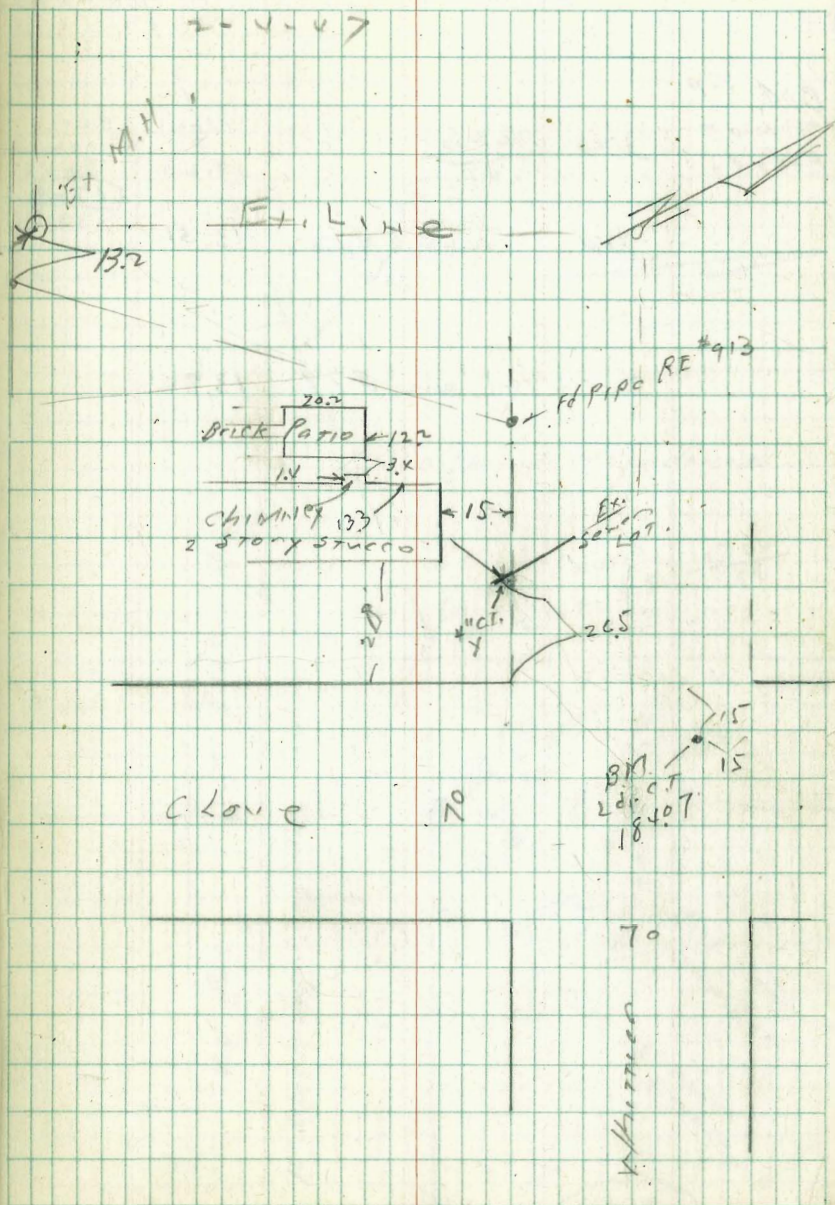 2-4-47
Ex M.H.
Ex. Line
13.2
Fd Pipe RE #913
20.2
Brick Patio
12.2
3.4
1.4
Chimney
133
2 Story Stucco
15
Ex.
Sewer
Lat.
28
26.5
15
15
BM
2 di. C.T
184.07
70
70
Whittier